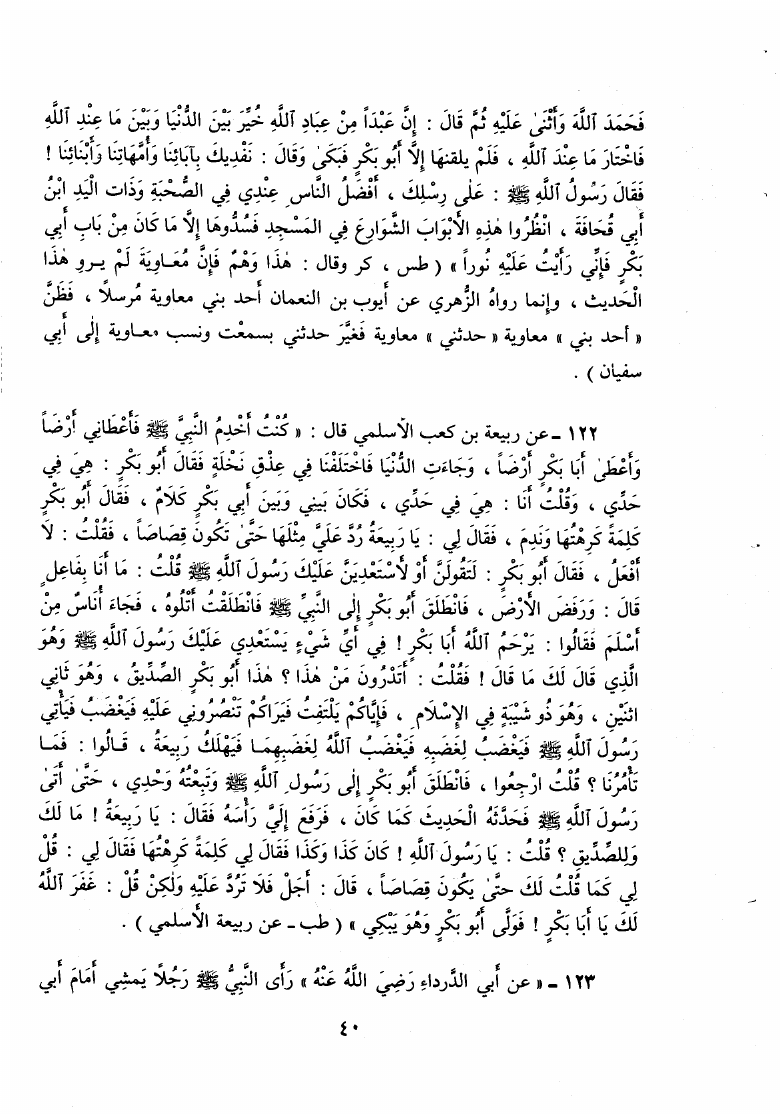 فَحَمَدَ ٱللَّهَ وَأَثْنَىٰ عَلَيْهِ ثُمَّ قَالَ : إِنَّ عَبْدَاً مِنْ عِبَادِ ٱللَّهِ خُيِّرَ بَيْنَ الدُّنْيَا وَبَيْنَ مَا عِنْدِ ٱللَّهِ
فَاخْتَارَ مَا عِنْدَ ٱللَّهِ ، فَلَمْ يلقنها إِلَّا أَبُو بَكْرٍ فَبَكَىٰ وَقَالَ : نَفْدِيكَ بِآبَائِنَا وَأُمَّهَاتِنَا وَأَبْنَائِنَا !
فَقَالَ رَسُولُ ٱللَّهِ ﷺ : عَلَىٰ رِسْلِكَ ، أَفْضَلُ النَّاسِ عِنْدِي فِي الصُّحْبَةِ وَذَاتِ الْيَدِ ابْنُ
أَبِي قُحَافَةَ ، انْظُرُوا هٰذِهِ الأَبْوَابَ الشَّوَارِعَ فِي المَسْجِدِ فَسُدُّوهَا إِلَّا مَا كَانَ مِنْ بَابِ أَبِي
بَكْرٍ فَإِنِّي رَأَيْتُ عَلَيْهِ نُوراً » ( طس ، كر وقال : هٰذَا وَهْمٌ فَإِنَّ مُعَاوِيَةَ لَمْ يرو هٰذَا
الْحَدِيث ، وإنما رواهُ الزُّهري عن أيوب بن النعمان أحد بني معاوية مُرسلًا ، فَظَنَّ
« أحد بني » معاوية « حدثني » معاوية فَغَيَّرَ حدثني بسمعْت ونسب معاوية إِلَى أَبي
سفيان ) .
١٢٢ - عن ربيعة بن كعب الأسلمي قال : « كُنْتُ أَخْدِمُ النَّبِيَّ ﷺ فَأَعْطَانِي أَرْضَاً
وَأَعْطَىٰ أَبَا بَكْرٍ أَرْضَاً ، وَجَاءَتِ الدُّنْيَا فَاخْتَلَفْنَا فِي عِذْقِ نَخْلَةٍ فَقَالَ أَبُو بَكْرٍ : هِيَ فِي
حَدِّي ، وَقُلْتُ أَنَا : هِيَ فِي حَدِّي ، فَكَانَ بَيْنِي وَبَيْنَ أَبِي بَكْرٍ كَلَامٌ ، فَقَالَ أَبُو بَكْرٍ
كَلِمَةً كَرِهْتُهَا وَنَدِمَ ، فَقَالَ لِي : يَا رَبِيعَةُ رُدَّ عَلَيَّ مِثْلَهَا حَتَّىٰ تَكُونَ قِصَاصَاً ، فَقُلْتُ : لَا
أَفْعَلُ ، فَقَالَ أَبُو بَكْرٍ : لَتَقُولَنَّ أَوْ لَأَسْتَعْدِيَنَّ عَلَيْكَ رَسُولَ ٱللَّهِ ﷺ قُلْتُ : مَا أَنَا بِفَاعِلٍ
قَالَ : وَرَفَضَ الأَرْضَ ، فَانْطَلَقَ أَبُو بَكْرٍ إِلَى النَّبِيِّ ﷺ فَانْطَلَقْتُ أَتْلُوهُ ، فَجَاءَ أُنَاسٌ مِنْ
أَسْلَمَ فَقَالُوا : يَرْحَمُ ٱللَّهُ أَبَا بَكْرٍ ! فِي أَيِّ شَيْءٍ يَسْتَعْدِي عَلَيْكَ رَسُولَ ٱللَّهِ ﷺ وَهُوَ
الَّذِي قَالَ لَكَ مَا قَالَ ! فَقُلْتُ : أَتَدْرُونَ مَنْ هٰذَا ؟ هٰذَا أَبُو بَكْرٍ الصِّدِّيقُ ، وَهُوَ ثَانِي
اثْنَيْنِ ، وَهُوَ ذُو شَيْبَةٍ فِي الإِسْلَامِ ، فَإِيَّاكُمْ يَلْتَفِتُ فَيَرَاكُمْ تَنْصُرُونِي عَلَيْهِ فَيَغْضَبُ فَيَأْتِي
رَسُولَ ٱللَّهِ ﷺ فَيَغْضَبُ لِغَضَبِهِ فَيَغْضَبُ ٱللَّهُ لِغَضَبِهِمَا فَيَهْلَكُ رَبِيعَةُ ، قَالُوا : فَمَا
تَأْمُرُنَا ؟ قُلْتُ ارْجِعُوا ، فَانْطَلَقَ أَبُو بَكْرٍ إِلَى رَسُولِ ٱللَّهِ ﷺ وَتَبِعْتُهُ وَحْدِي ، حَتَّىٰ أَتَىٰ
رَسُولَ ٱللَّهِ ﷺ فَحَدَّثَهُ الْحَدِيثَ كَمَا كَانَ ، فَرَفَعَ إِلَيَّ رَأْسَهُ فَقَالَ : يَا رَبِيعَةُ ! مَا لَكَ
وَلِلصِّدِّيقِ ؟ قُلْتُ : يَا رَسُولَ ٱللَّهِ ! كَانَ كَذَا وَكَذَا فَقَالَ لِي كَلِمَةً كَرِهْتُهَا فَقَالَ لِي : قُلْ
لِي كَمَا قُلْتُ لَكَ حتَّىٰ يَكُونَ قِصَاصَاً ، قَالَ : أَجَلْ فَلَا تَرُدَّ عَلَيْهِ وَلٰكِنْ قُلْ : غَفَرَ ٱللَّهُ
لَكَ يَا أَبَا بَكْرٍ ! فَوَلَّى أَبُو بَكْرٍ وَهُوَ يَبْكِي » ( طب - عن ربيعة الأسلمي ) .
١٢٣ - « عن أَبي الدَّرداءِ رَضِيَ اللَّهُ عَنْهُ » رَأَى النَّبِيُّ ﷺ رَجُلًا يَمشِي أَمَامَ أَبي
٤٠